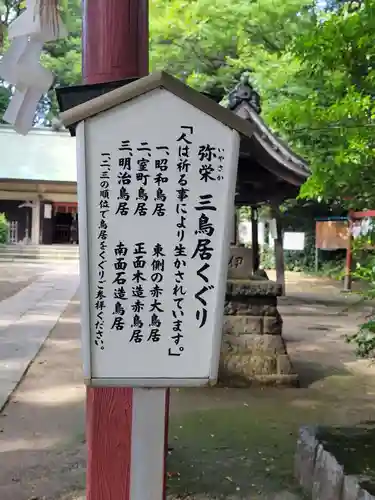 いやさか
弥栄 三鳥居くぐり
「人は祈る事により生かされています」
一、昭和鳥居 東側の赤大鳥居
二、室町鳥居 正面木造赤鳥居
三、明治鳥居 南面石造鳥居
一二三の順位で鳥居をくぐりご来拝ください。